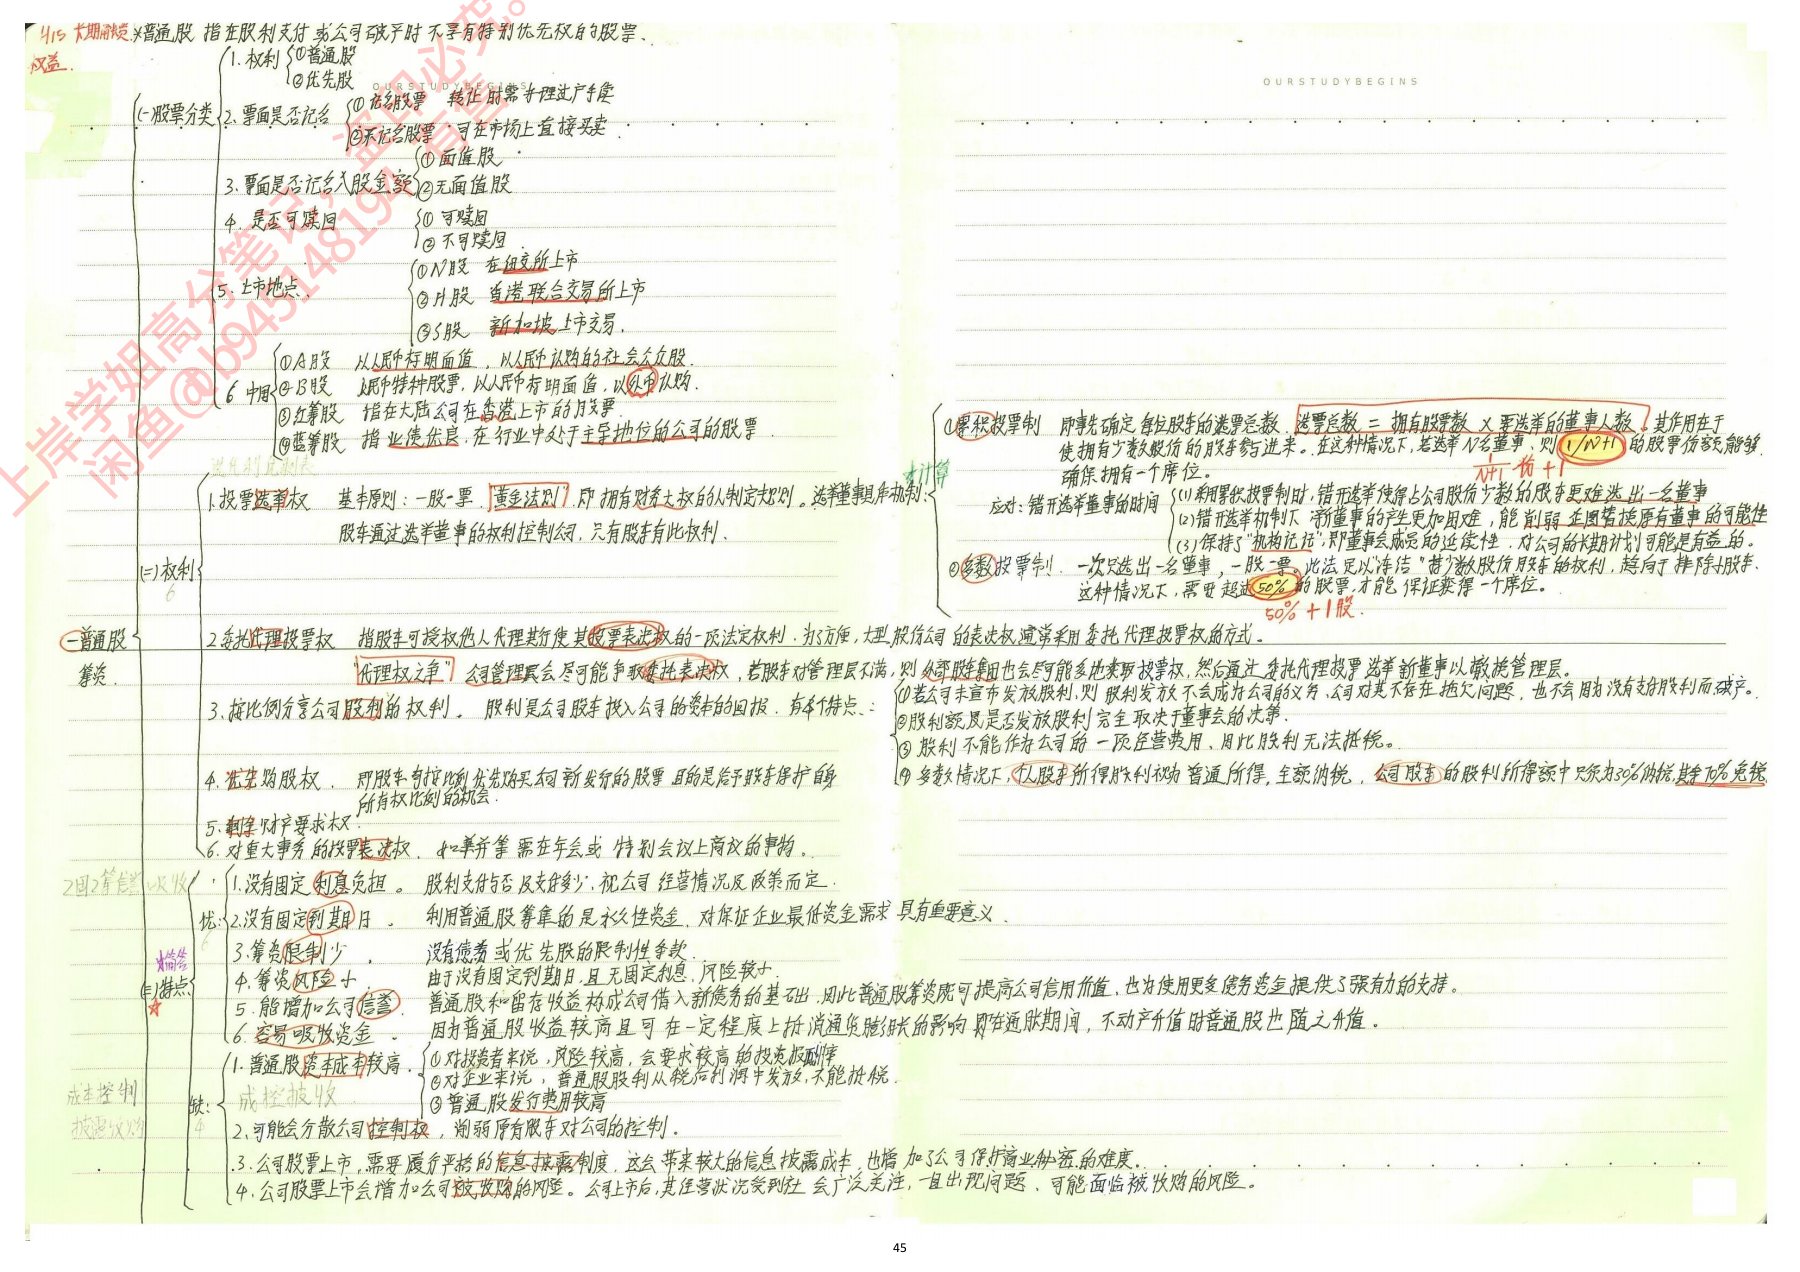 4.15 长期融资 ※普通股 指在股利支付或公司破产时不享有特别优先权的股票.
权益.
OURSTUDYBEGINS
OURSTUDYBEGINS
(一)股票分类
1. 权利 ①普通股
②优先股
2. 票面是否记名 ①记名股票 转让时需办理过户手续
②无记名股票 可在市场上直接买卖
3. 票面是否记名入股金额 ①面值股
②无面值股
4. 是否可赎回 ①可赎回
②不可赎回
5. 上市地点 ①N股 在纽交所上市
②H股 香港联合交易所上市
③S股 新加坡上市交易.
6 中国 ①A股 以人民币标明面值, 以人民币认购的社会公众股.
②B股 人民币特种股票, 以人民币标明面值, 以外币认购.
③红筹股 指在大陆公司在香港上市的股票.
④蓝筹股 指业绩优良, 在行业中处于主导地位的公司的股票
一普通股
筹资.
(二)权利
6
1.投票选举权 基本原则: 一股一票. "黄金法则" 即拥有财务大权的人制定规则。选举董事具体机制:
股东通过选举董事的权利控制公司, 只有股东有此权利.
*计算
①累积投票制 即事先确定每位股东的选票总数. 选票总数 = 拥有股票数 × 要选举的董事人数. 其作用在于
使拥有少数股份的股东参与进来。在这种情况下, 若选举N名董事, 则 1/N+1 的股票份额能够
确保拥有一个席位。
1/N+1 份 + 1
应对: 错开选举董事的时间 (1) 采用累积投票制时, 错开选举使得占公司股份少数的股东更难选出一名董事
(2) 错开选举机制下 新董事的产生更加困难, 能削弱企图替换原有董事的可能性
(3) 保持了"机构记忆", 即董事会成员的延续性. 对公司的长期计划可能是有益的。
②多数投票制. 一次只选出一名董事, 一股一票. 此法足以"冻结"持少数股份股东的权利, 趋向于排除小股东.
这种情况下, 需要超过50%的股票, 才能保证获得一个席位。
50% + 1股.
2.委托代理投票权 指股东可授权他人代理其行使其投票表决权的一项法定权利. 为了方便, 大型股份公司的表决权通常采用委托代理投票权的方式。
"代理权之争" 公司管理层会尽可能争取委托表决权, 若股东对管理层不满, 则外部股东集团也会尽可能多地索取投票权, 然后通过委托代理投票选举新董事以撤换管理层.
3. 按比例分享公司股利的权利。 股利是公司股东投入公司的资本的回报. 有4个特点:
①若公司未宣布发放股利, 则股利发放不会成为公司的义务. 公司对其不存在拖欠问题, 也不会因为没有支付股利而破产。
②股利额及是否发放股利完全取决于董事会的决策.
③股利不能作为公司的一项经营费用, 因此股利无法抵税。
④多数情况下, 个人股东所得股利视为普通所得, 全额纳税, 公司股东的股利所得额中只须为30%纳税, 其余70%免税.
4. 优先购股权. 即股东有按比例优先购买公司新发行的股票 目的是给予股东保护自身
所有权比例的机会.
5. 剩余财产要求权.
6. 对重大事务的投票表决权. 如兼并等需在年会或特别会议上商议的事物。
*简答
(三)特点
优:
6
1. 没有固定利息负担。 股利支付与否及支付多少, 视公司经营情况及政策而定.
2.没有固定到期日. 利用普通股筹集的是永久性资金, 对保证企业最低资金需求具有重要意义.
3. 筹资限制少. 没有债券或优先股的限制性条款.
4. 筹资风险小 由于没有固定到期日, 且无固定利息, 风险较小.
5. 能增加公司信誉. 普通股和留存收益构成公司借入新债务的基础, 因此普通股筹资既可提高公司信用价值, 也为使用更多债务资金提供了强有力的支持。
6. 容易吸收资金. 因为普通股收益较高且可在一定程度上抵消通货膨胀的影响 即在通胀期间, 不动产升值时普通股也随之升值。
成本控制
披露收购
缺:
4
1. 普通股资本成本较高. ①对投资者来说, 风险较高, 会要求较高的投资报酬率
②对企业来说, 普通股股利从税后利润中发放, 不能抵税.
③普通股发行费用较高
成控披收
2. 可能会分散公司控制权, 削弱原有股东对公司的控制。
3. 公司股票上市, 需要履行严格的信息披露制度. 这会带来较大的信息披露成本, 也增加了公司保护商业秘密的难度.
4. 公司股票上市会增加公司被收购的风险。公司上市后, 其经营状况受到社会广泛关注, 一旦出现问题, 可能面临被收购的风险。
上岸学姐高分笔记, 盗印必究。
闲鱼@b945148194 有售
45